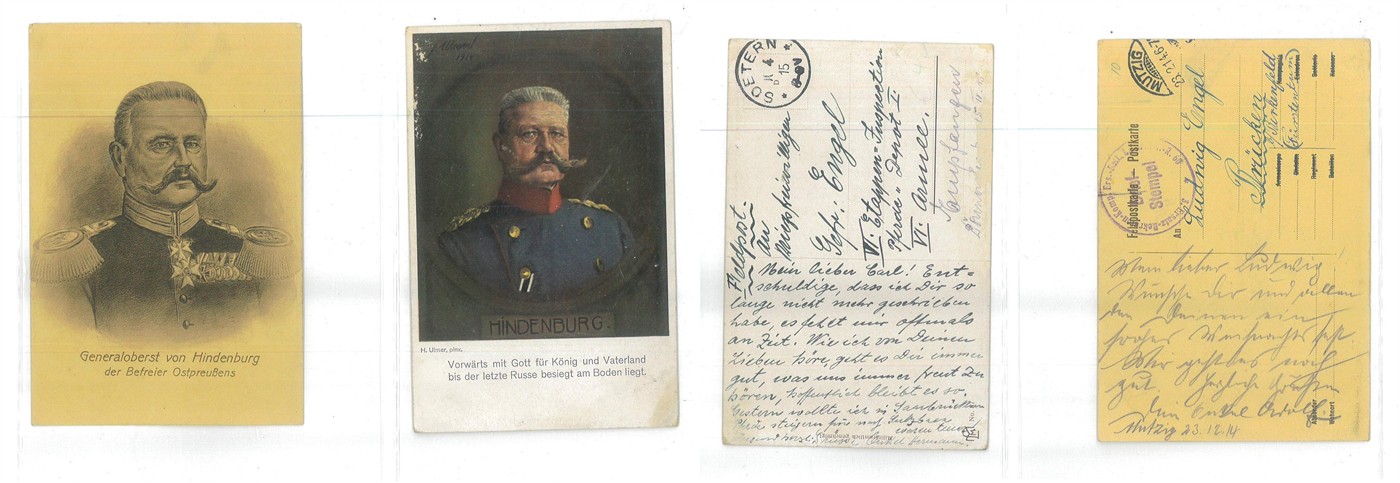 Generaloberst von Hindenburg
der Befreier Ostpreußens
HINDENBURG.
H. Ulmer, pinx.
Vorwärts mit Gott für König und Vaterland
bis der letzte Russe besiegt am Boden liegt.
SOETERN
4
15
8-9V
Feldpost
An
Kriegsfreiwilligen
Gefr. Engel
VI. Etappen-Inspection
Pferde-Depot I
VI. Armee.
Mein lieber Carl! Ent-
schuldige, dass ich Dir so
lange nicht mehr geschrieben
habe, es fehlt mir oftmals
an Zeit. Wie ich von Deinen
Lieben höre, geht es Dir immer
gut, was uns immer freut zu
hören, hoffentlich bleibt es so.
Gestern wollte ich in Saarbrücken
MUTZIG
23.12.14.6-7
Feldpostkarte — Postkarte
Stempel
An
Ludwig Engel
Brücken
Birkenfeld
Fürstentum
Mein lieber Ludwig
Wünsche Dir und allen
den Deinen ein
frohes Weihnachtsfest.
Mir geht es noch
gut. Herzliche Grüße
Dein Onkel Adolf.
Mutzig 23.12.14